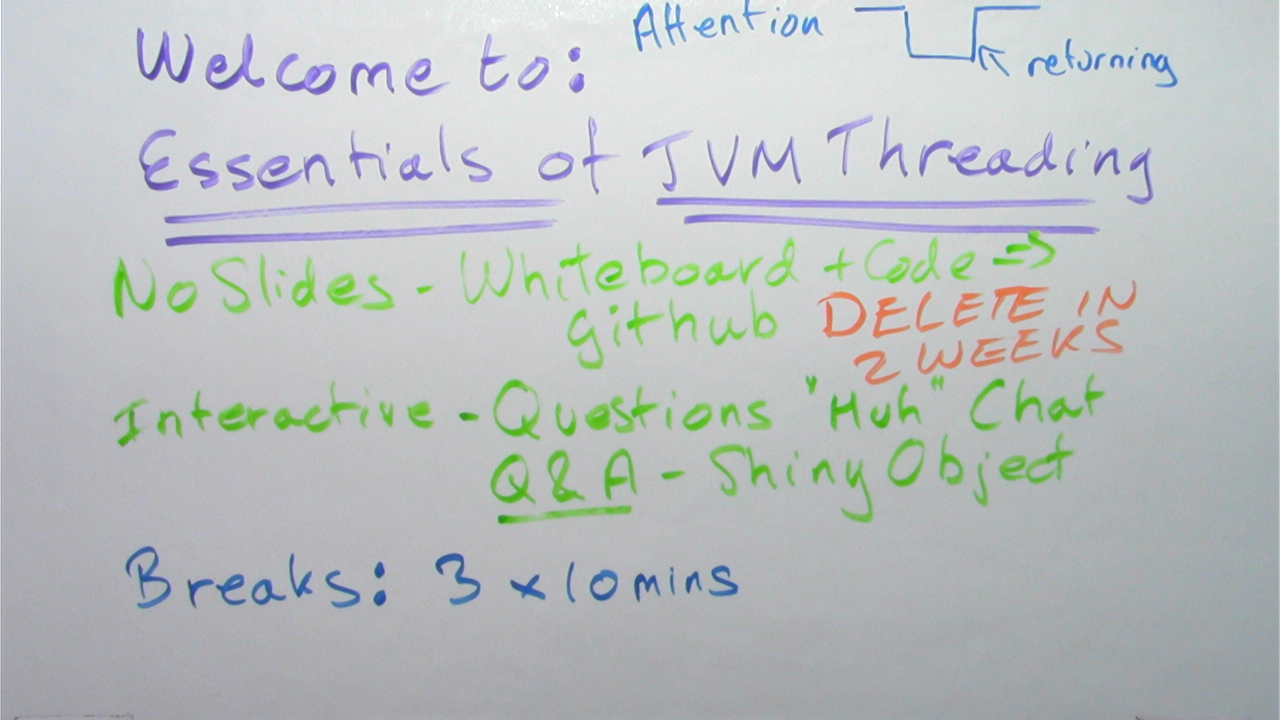 Attention
Welcome to:
returning
Essentials of JVM Threading
No Slides - Whiteboard + Code =>
github
DELETE IN
2 WEEKS
Interactive - Questions "Huh" Chat
Q&A - Shiny Object
Breaks: 3 x 10 mins